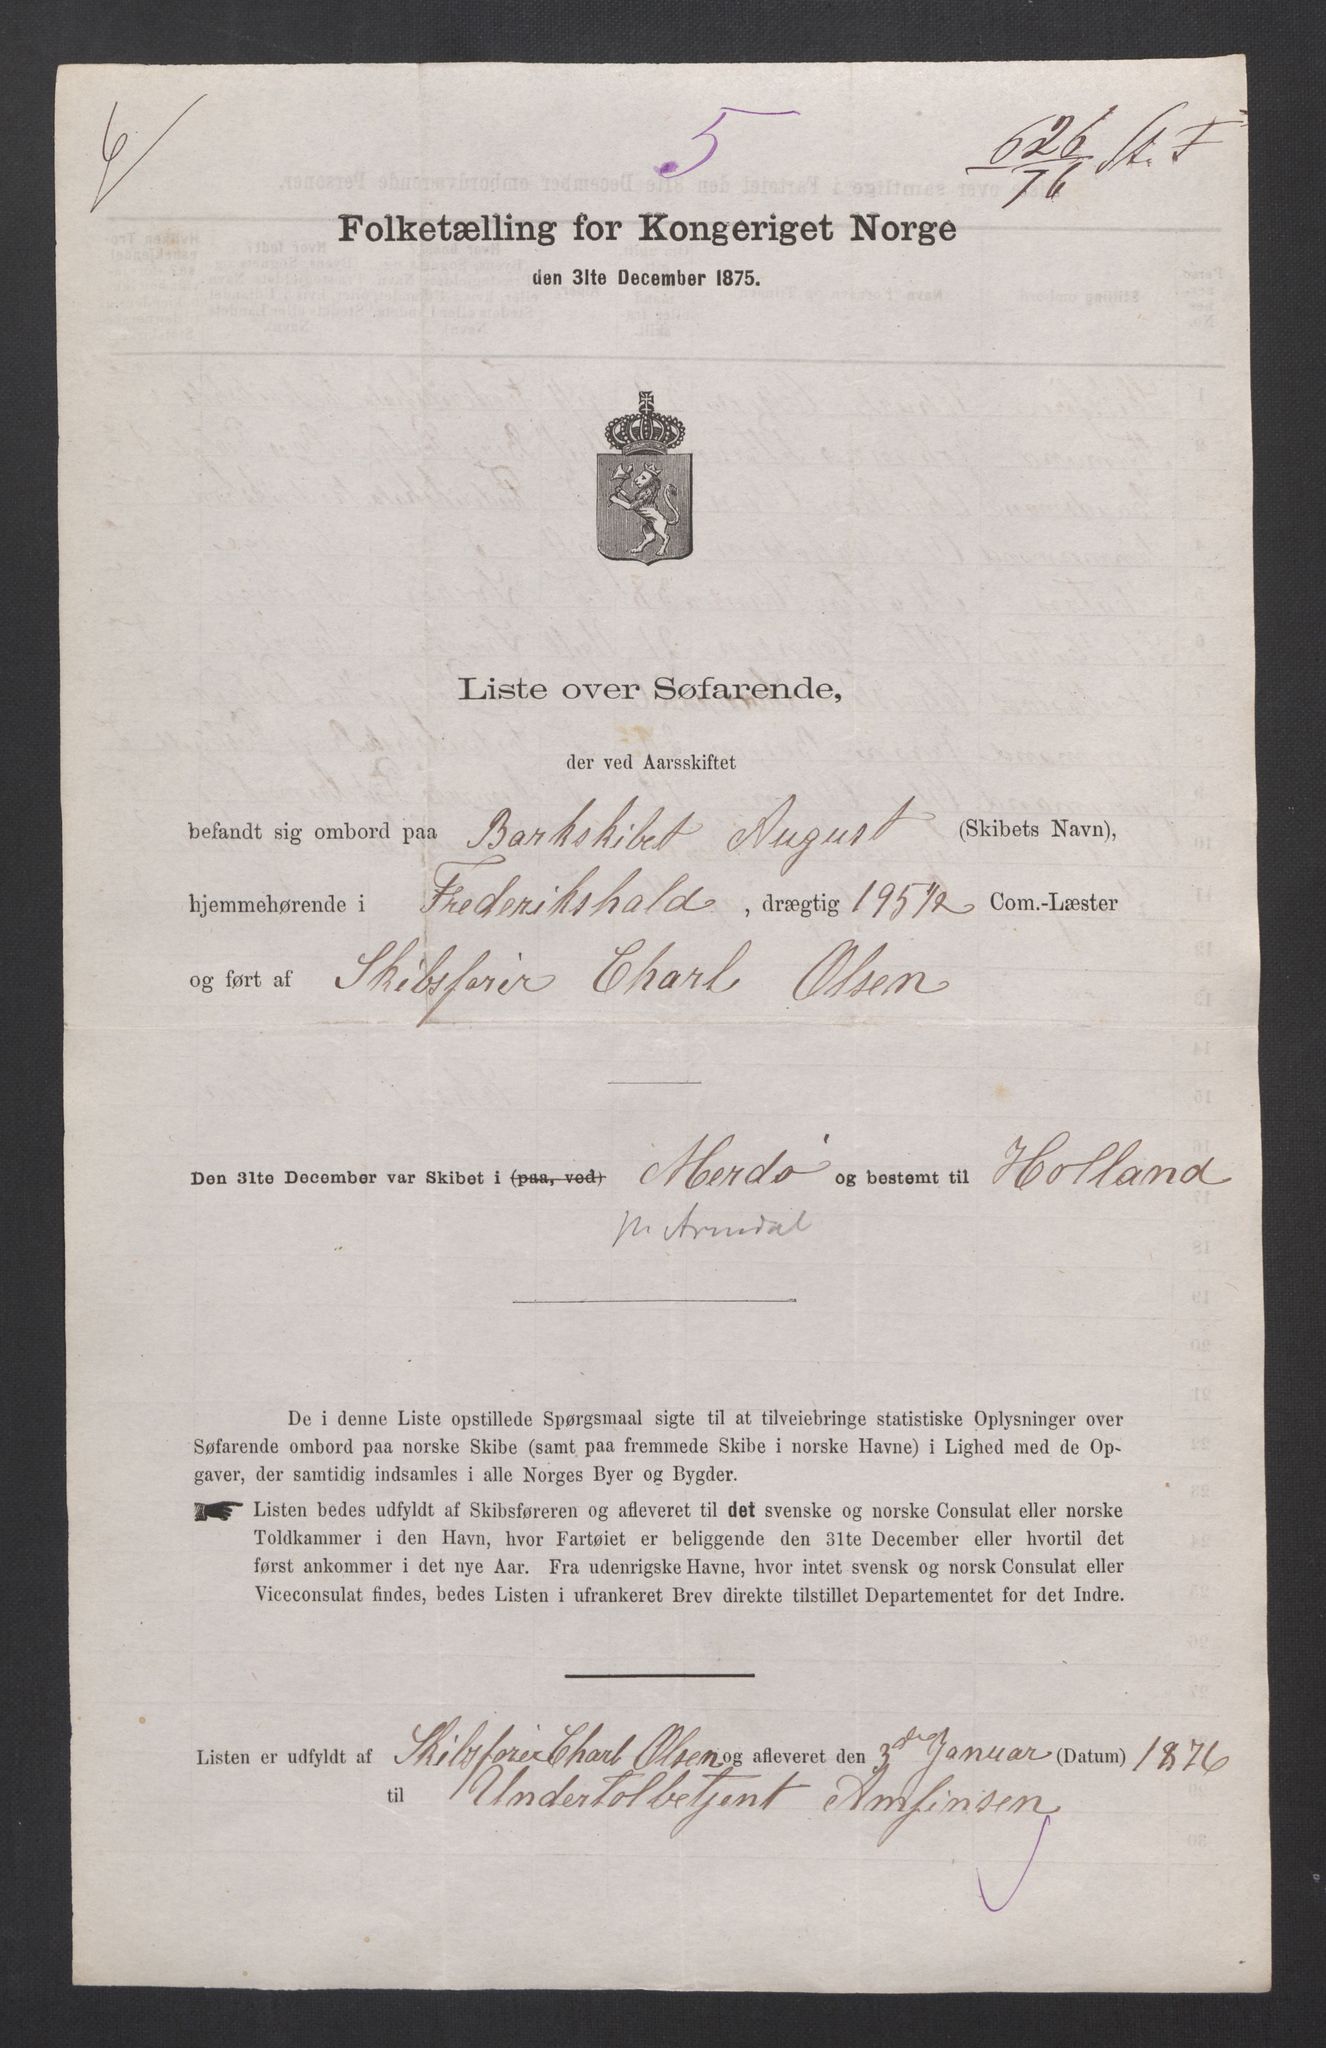 6/
5
626/76 St. F
Folketælling for Kongeriget Norge
den 31te December 1875.
Liste over Søfarende,
der ved Aarsskiftet
befandt sig ombord paa Barkskibet August (Skibets Navn),
hjemmehørende i Frederikshald, drægtig 195 1/2 Com.-Læster
og ført af Skibsfører Charl Olsen
Den 31te December var Skibet i (paa, ved) Merdö og bestemt til Holland
pr Arendal
De i denne Liste opstillede Spørgsmaal sigte til at tilveiebringe statistiske Oplysninger over
Søfarende ombord paa norske Skibe (samt paa fremmede Skibe i norske Havne) i Lighed med de Op-
gaver, der samtidig indsamles i alle Norges Byer og Bygder.
Listen bedes udfyldt af Skibsføreren og afleveret til det svenske og norske Consulat eller norske
Toldkammer i den Havn, hvor Fartøiet er beliggende den 31te December eller hvortil det
først ankommer i det nye Aar. Fra udenrigske Havne, hvor intet svensk og norsk Consulat eller
Viceconsulat findes, bedes Listen i ufrankeret Brev direkte tilstillet Departementet for det Indre.
Listen er udfyldt af Skibsfører Charl Olsen og afleveret den 3die Januar (Datum) 1876
til Undertolbetjent Amfinsen